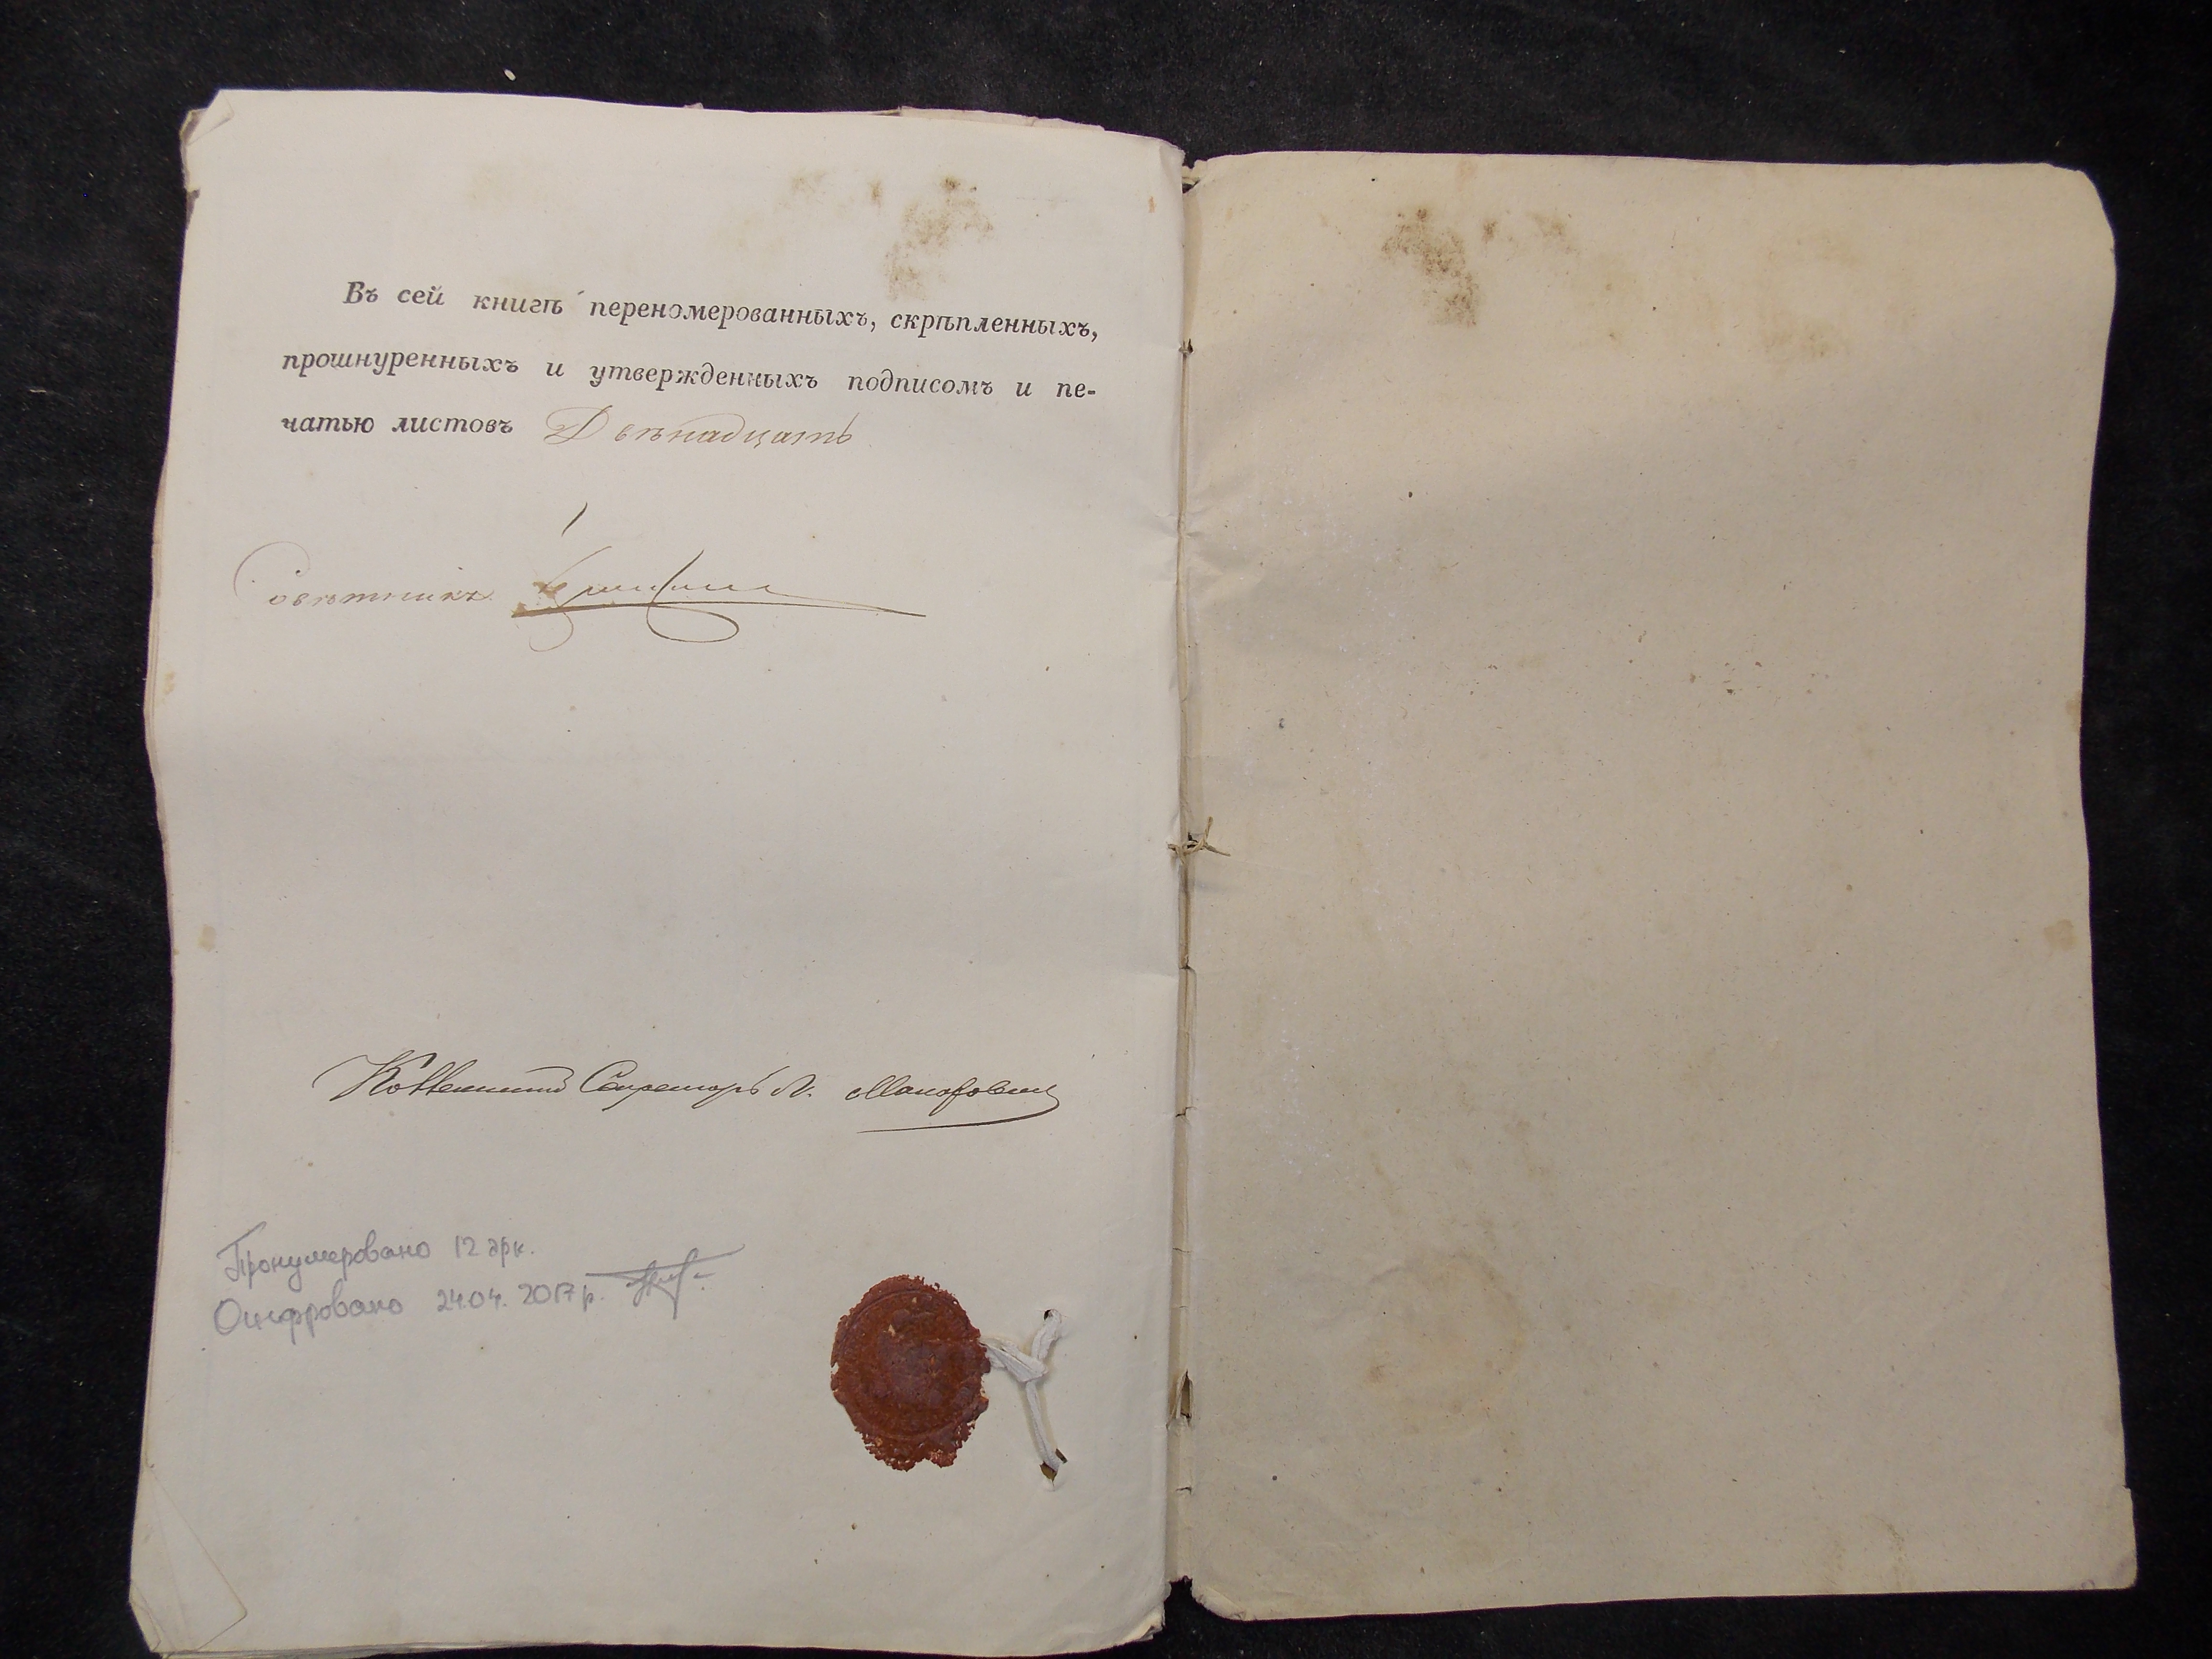 Въ сей книгѣ переномерованныхъ, скрѣпленныхъ,
прошнуренныхъ и утвержденныхъ подписомъ и пе-
чатью листовъ Двѣнадцать
Совѣтникъ
Коллежский Секретарь
Пронумеровано 12 арк.
Оцифровано 24.04.2017 р.